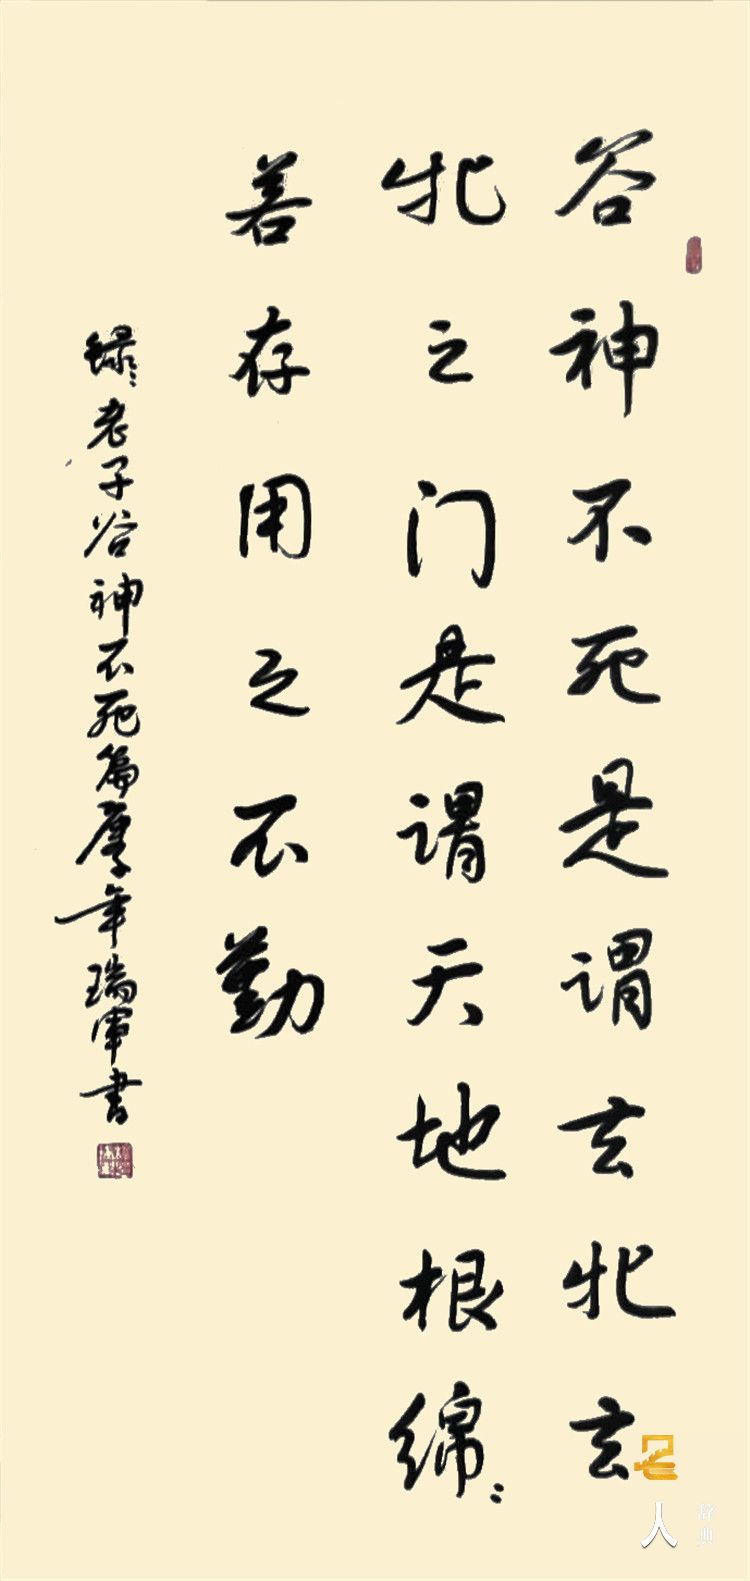 谷神不死是谓玄牝玄
牝之门是谓天地根绵〻
若存用之不勤
录老子谷神不死篇庚子年瑞军书
人
辞典